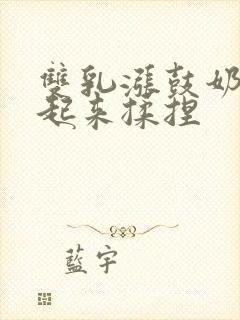 雙乳漲鼓奶
起来揉捏
藍宇